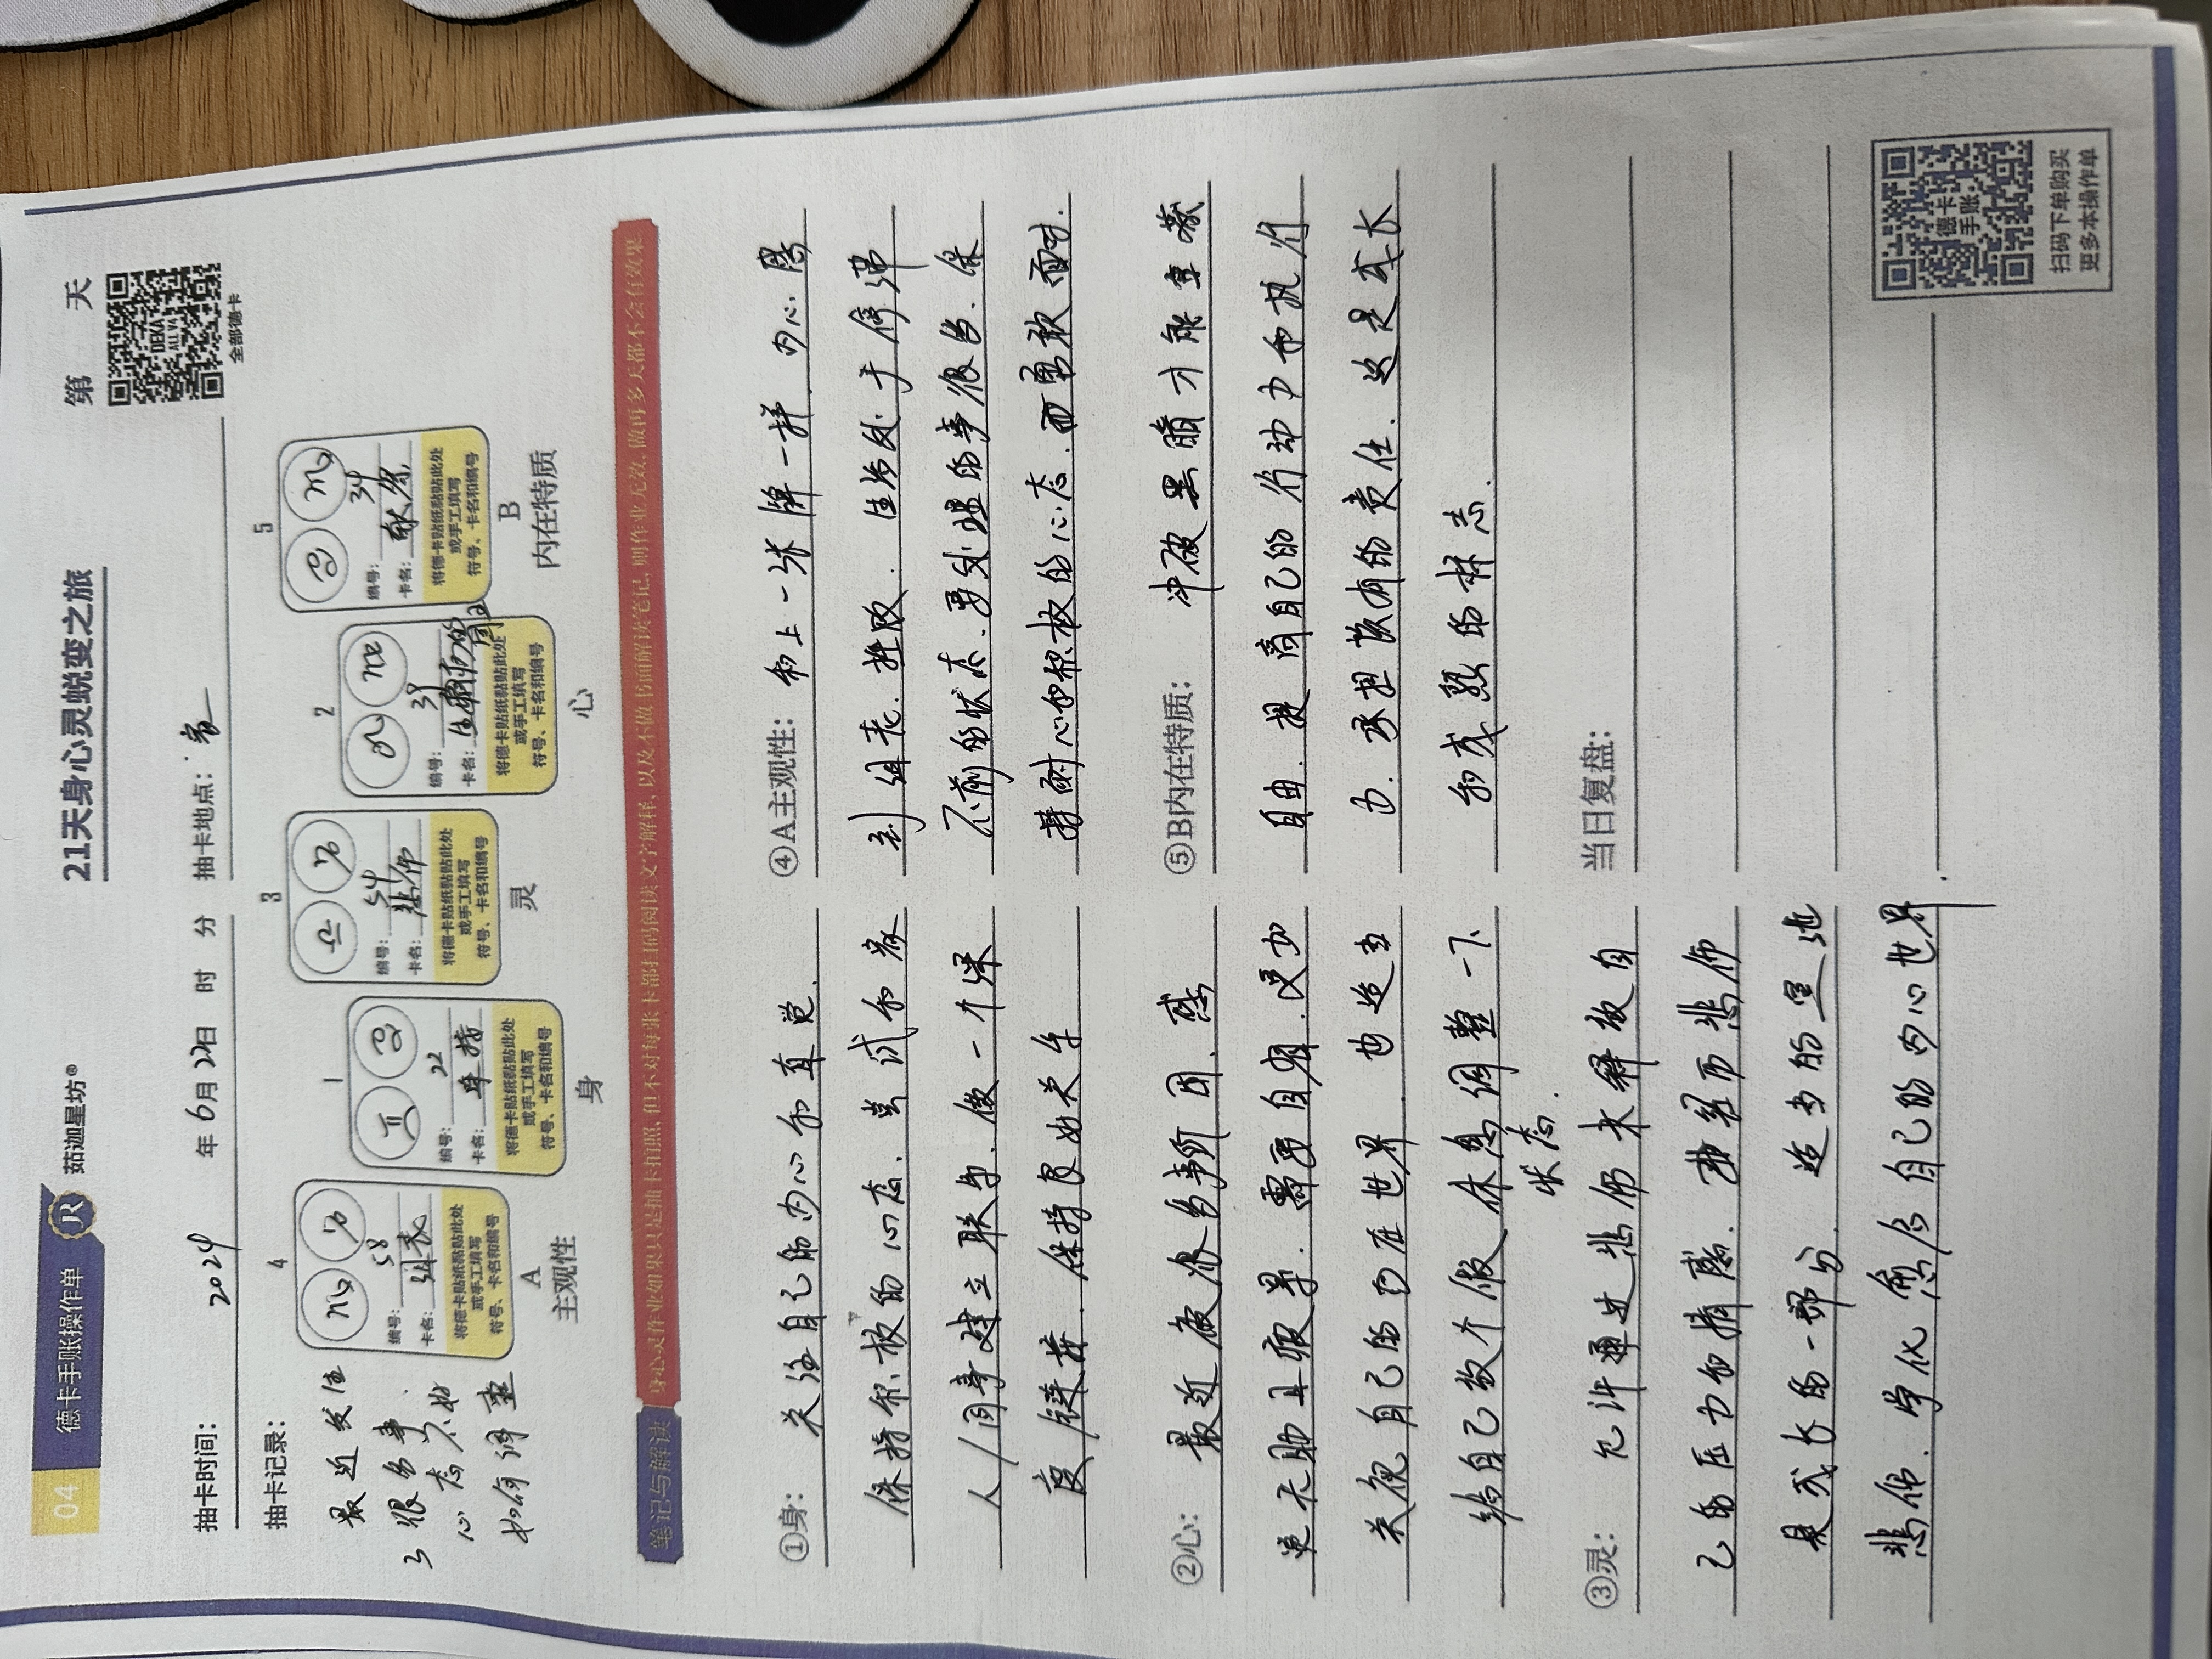 04 德卡手账操作单
JR 茹迦星坊®
21天身心灵蜕变之旅
第 天
抽卡时间: 2024 年 6月 22日 时 分
抽卡地点: 家
DEKA
ALL V4
全部德卡
抽卡记录:
最近发生
了很多事.
心态不好
如何调整
4
编号: 58
卡名: 沮丧
将德卡贴纸粘贴此处
或手工填写
符号、卡名和编号
A
主观性
1
编号: 22
卡名:
将德卡贴纸粘贴此处
或手工填写
符号、卡名和编号
身
3
编号: 54
卡名: 悲伤
将德卡贴纸粘贴此处
或手工填写
符号、卡名和编号
灵
2
编号: 39
卡名:
将德卡贴纸粘贴此处
或手工填写
符号、卡名和编号
心
5
编号: 34
卡名:
将德卡贴纸粘贴此处
或手工填写
符号、卡名和编号
B
内在特质
笔记与解读
身心灵作业如果只是抽卡拍照,但不对每张卡都扫码阅读文字解释,以及不做书面解读笔记,则作业无效,做再多天都不会有效果
①身: 关注自己的内心和直觉.
保持积极的心态. 尝试和家
人/同事建立联系. 做一个深
度/链接. 保持良好关系
②心: 最近被很多事所困. 感
觉无助且疲累. 需要自省. 更加
关视自己的内在世界. 也适当
给自己放个假 休息调整一下
状态.
③灵: 允许通过悲伤来释放自
己的压力和情感. 而悲伤
是成长的一部分. 适当的
悲伤. 净化 自己的内心世界.
④A主观性: 和上一张牌一样. 内心感
到沮丧. 挫败. 生活处于停滞
不前的状态. 要处理的事很多. 保
持耐心和积极的心态. 要勇敢面对.
⑤B内在特质: 冲破黑暗才能重获
自由. 提高自己的行动力和执行
力. 承担该有的责任. 这是成长
和成熟的标志.
当日复盘:
德卡
手账
扫码下单购买
更多本操作单